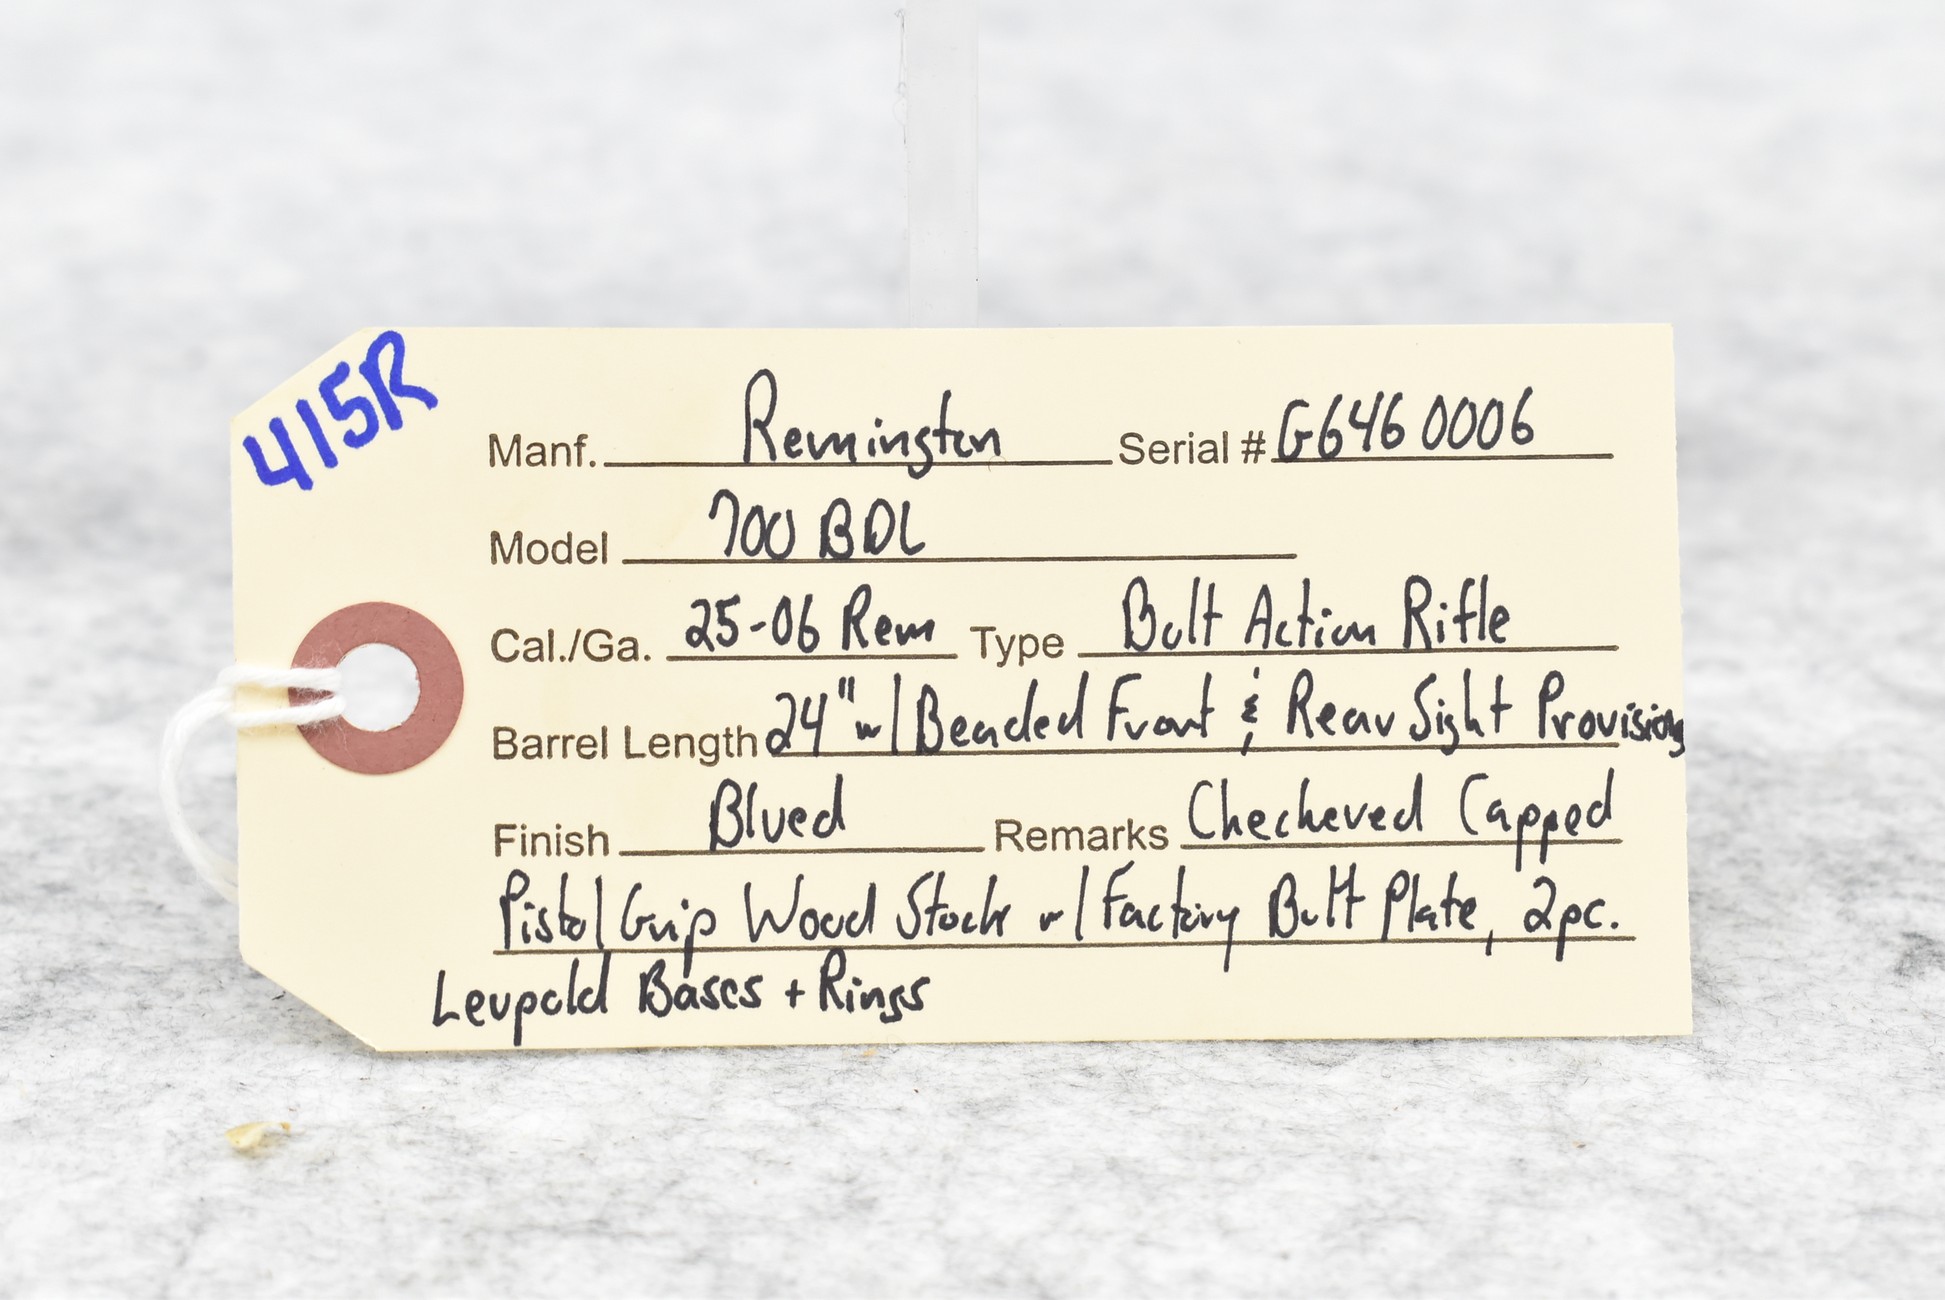 415R
Manf. Remington Serial # G6460006
Model 700 BDL
Cal./Ga. 25-06 Rem Type Bolt Action Rifle
Barrel Length 24" w/ Beaded Front & Rear Sight Provisions
Finish Blued Remarks Checkered Capped
Pistol Grip Wood Stock w/ Factory Butt Plate, 2pc.
Leupold Bases + Rings